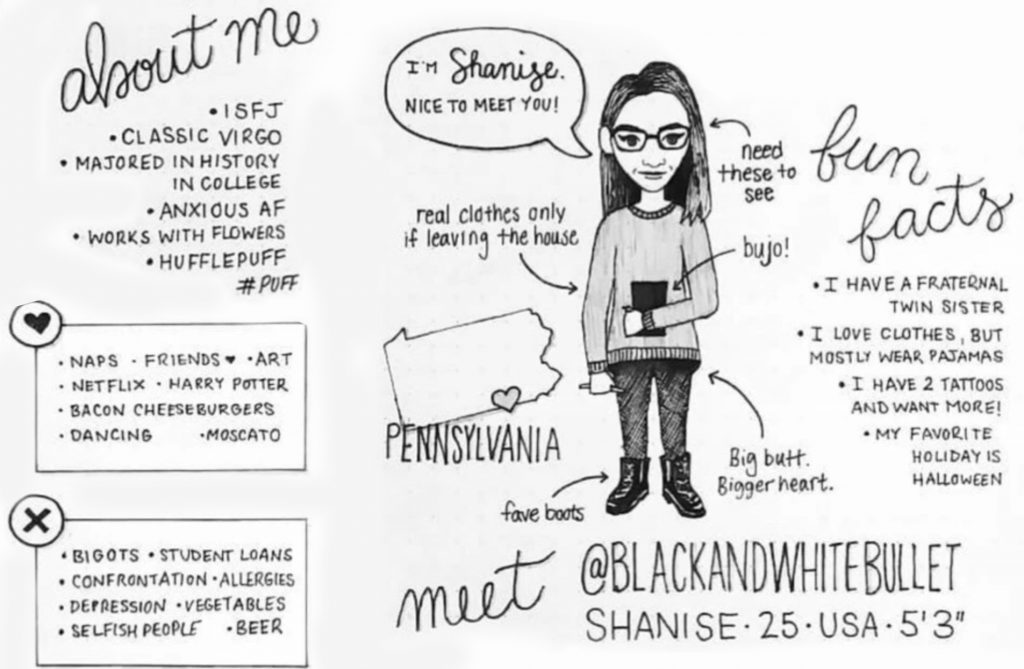 about me
• ISFJ
• CLASSIC VIRGO
• MAJORED IN HISTORY
IN COLLEGE
• ANXIOUS AF
• WORKS WITH FLOWERS
• HUFFLEPUFF
#PUFF
• NAPS • FRIENDS ♥ • ART
• NETFLIX • HARRY POTTER
• BACON CHEESEBURGERS
• DANCING • MOSCATO
• BIGOTS • STUDENT LOANS
• CONFRONTATION • ALLERGIES
• DEPRESSION • VEGETABLES
• SELFISH PEOPLE • BEER
I'M Shanise.
NICE TO MEET YOU!
need
these to
see
real clothes only
if leaving the house
bujo!
PENNSYLVANIA
Big butt.
Bigger heart.
fave boots
fun
facts
• I HAVE A FRATERNAL
TWIN SISTER
• I LOVE CLOTHES, BUT
MOSTLY WEAR PAJAMAS
• I HAVE 2 TATTOOS
AND WANT MORE!
• MY FAVORITE
HOLIDAY IS
HALLOWEEN
meet @BLACKANDWHITEBULLET
SHANISE • 25 • USA • 5'3"